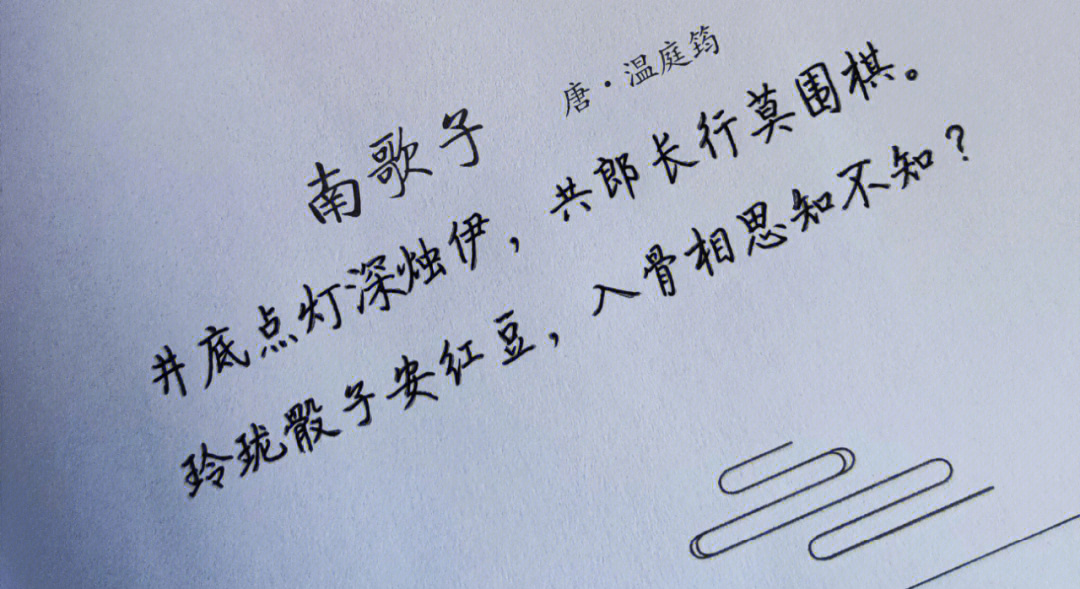 南歌子
唐·温庭筠
井底点灯深烛伊，共郎长行莫围棋。
玲珑骰子安红豆，入骨相思知不知？